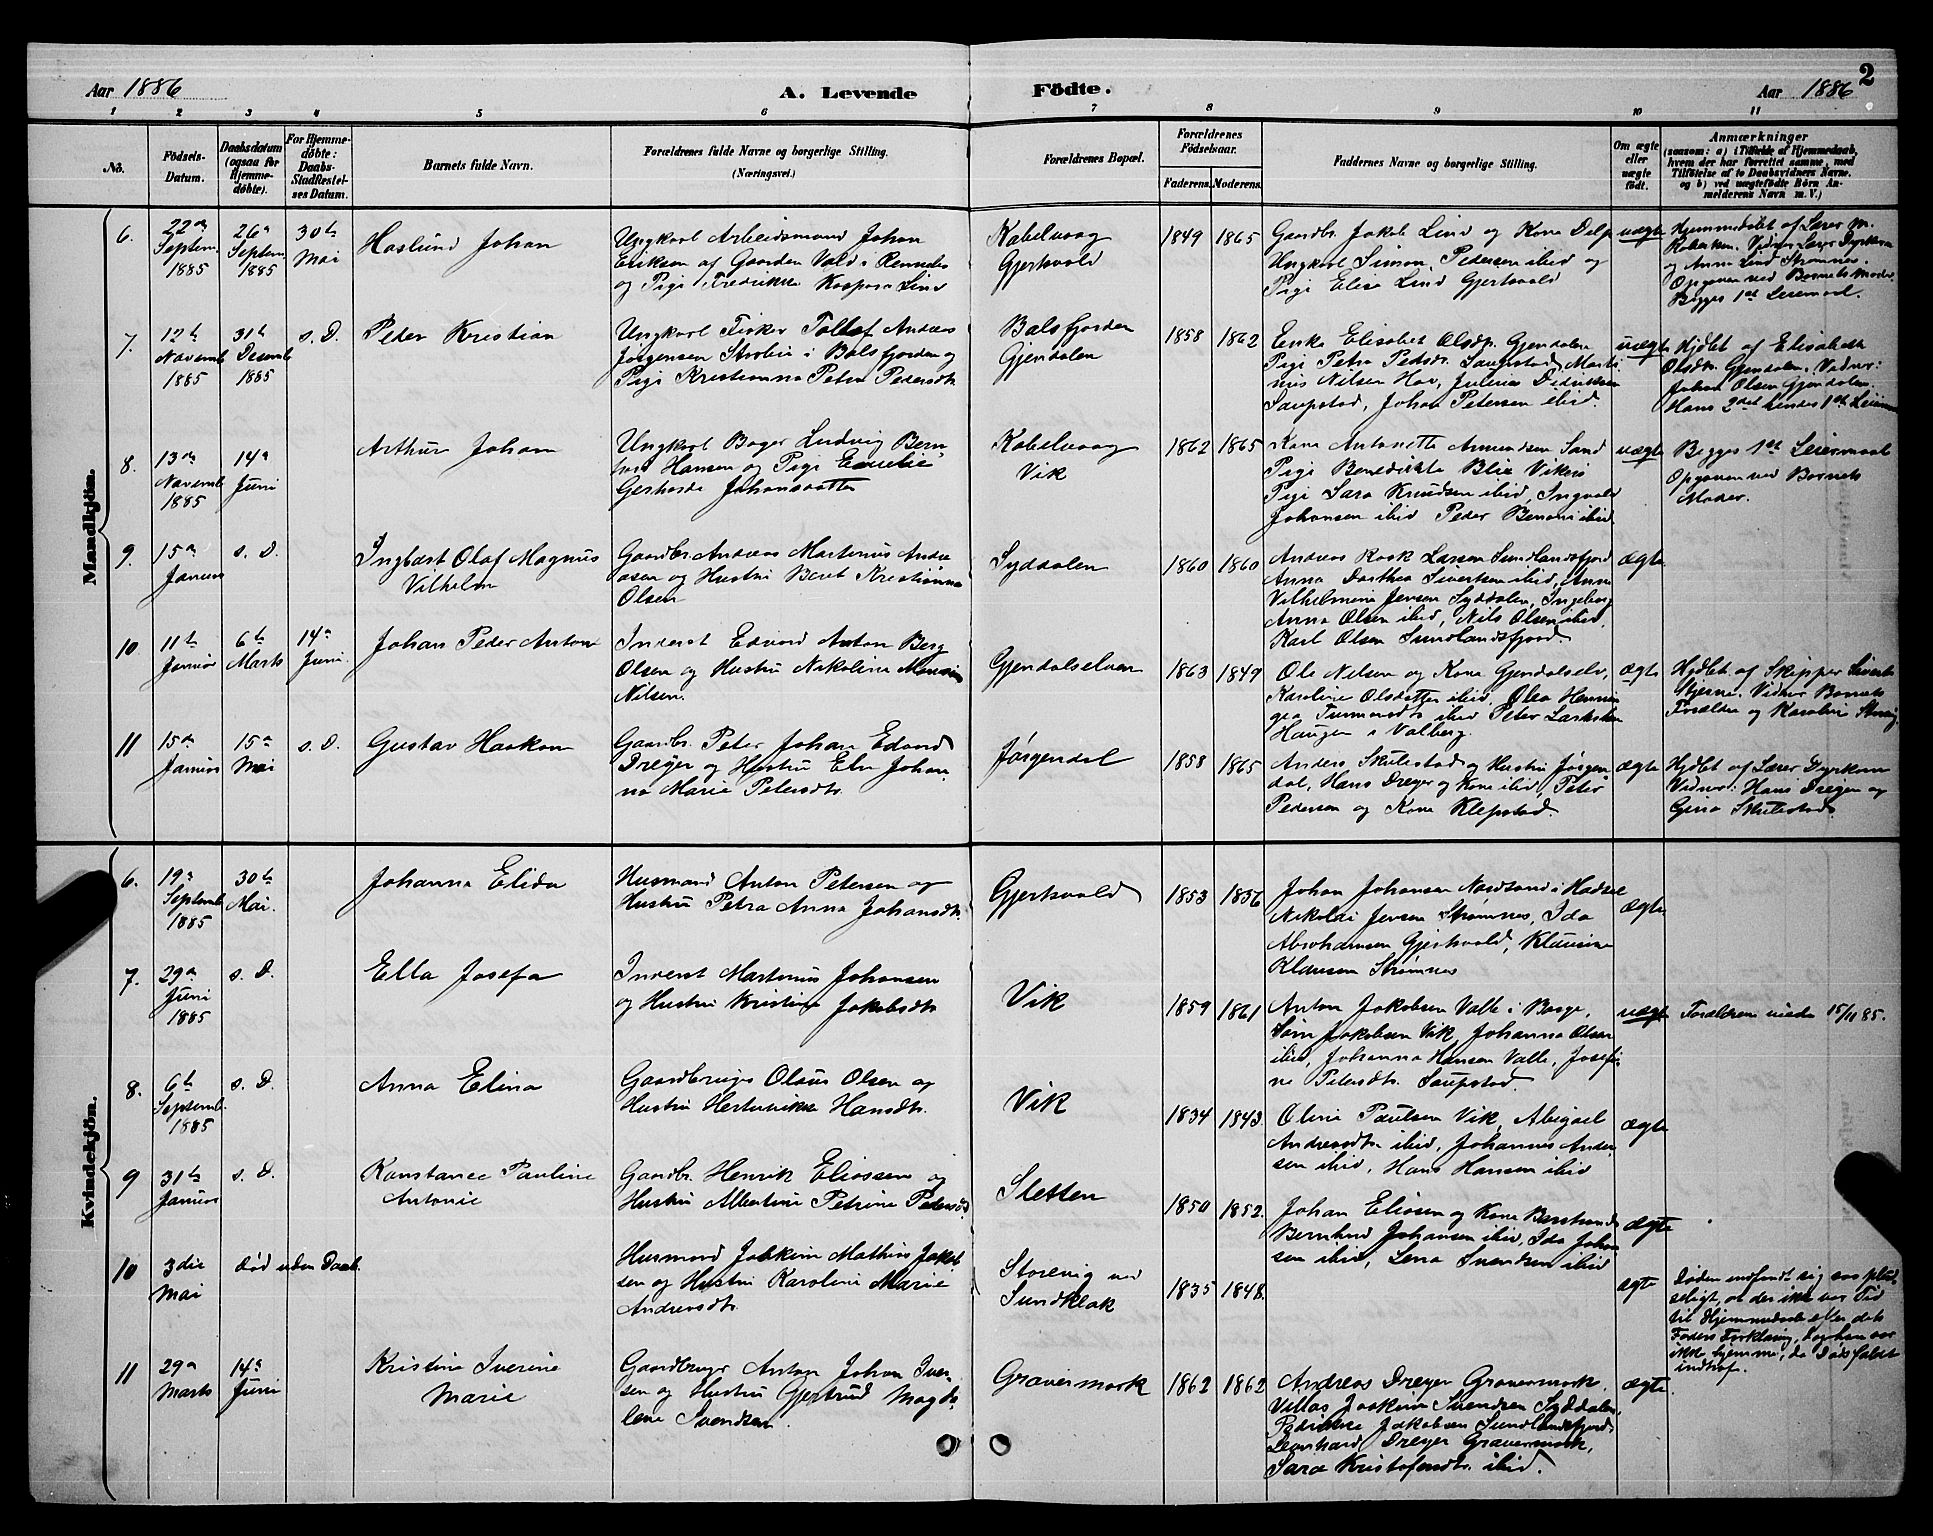 Aar 1886
A. Levende
Födte.
Aar 1886
2
1 2 3 4 5 6 7 8 9 10 11
No.
Födsels-
Datum.
Daabsdatum
(ogsaa for
Hjemme-
döbte).
For Hjemme-
döbte:
Daabs-
Stadfæstel-
ses Datum.
Barnets fulde Navn.
Forældrenes fulde Navne og borgerlige Stilling.
(Næringsvei.)
Forældrenes Bopæl.
Forældrenes
Födselsaar.
Faderens. Moderens.
Faddernes Navne og borgerlige Stilling.
Om ægte
eller
uægte
födt.
Anmærkninger
(saasom: a) i Tilfælde af Hjemmedaab,
hvem der har forrettet samme, med
Tilföielse af to Daabsvidners Navne.
og b) ved uægtefödte Börn An-
melderens Navn m. V.)
Mandkjön.
6.
22de
Septem.
1885
26de
Septem.
1885
30te
Mai
Haslund Johan
Ungkarl Arbeidsmand Johan
Eriksen af Gaarden Vold i
og Pige Fredrikke Kaspara Lind
Kabelvaag
Gjerstvold
1849
1865
Gaardbr. Jakob Lind og Kone
Ungkarl Simon Pedersen ibid og
Pige Elisa Lind Gjerstvold
uægte
Hjemmedöbt af Lærer M.
og Anna Lind Strømnes.
Opgaven ved Barnets Moder.
Begges 1ste Leiermaal.
7.
12te
Novemb
1885
31te
Desemb
1885
s. D.
Peder Kristian
Ungkarl Fisker Tollef Andreas
Jörgensen i Balsfjorden og
Pige Kristianna Petra Pedersdtr.
Balsfjorden
Gjendalen
1858
1862
Enke Elisabet Olsdtr. Gjendalen
Pige Petra Pedsdr. Saupstad, Marti
nus Nilsen Hov, Julenes Didriksen
Saupstad, Johan Petersen ibid.
uægte
Hjdbt af Elisabeth
Olsdtr. Gjendalen. Vidner:
Johan Olsen Gjendalen.
Hans 2det hendes 1ste Leierm
8.
13de
Novemb
1885
14de
Juni
Arthur Johan
Ungkarl Bager Ludvig Bern
hard Hansen og Pige Emelie
Gerharde Johansdatter
Kabelvaag
Vik
1862
1865
Kone Antonette Amundsen Sand
Pige Benedikte Blix Vik
Pige Sara Knudsen ibid, Ingvald
Johansen ibid Peder Benoni ibid
uægte
Begges 1ste Leiermaal
Opgaven ved Barnets
Moder.
9.
15de
Januar
s. D.
Ingbart Olaf Magnus
Vilhelm
Gaardbr. Andreas Martinus Andre
asen og Hustru Beret Kristianna
Olsen
Syddalen
1860
1860
Andreas Rask Larsen Sundlandsfjord
Anna Dorthea Sivertsen ibid, Anna
Vilhelmine Jensen Syddalen, Ingeborg
Anna Olsen ibid, Nils Olsen ibid,
Karl Olsen Sundlandsfjord.
ægte
10
11te
Januar
6te
Marts
14de
Juni
Johan Peder Anton
Inderst Edvard Anton Berg
Olsen og Hustru Nikoline
Nilsen.
Gjendalselven
1863
1849
Ole Nilsen og Kone Gjendalselv,
Karoline Olsdatter ibid, Olea Hennin
gea ibid Peter
Haugen i Valberg.
ægte
Hjdbt af Skipper
Stjerne. Vidner Barnets
Forældre og Karoline
11
15de
Januar
15de
Mai
s. D.
Gustav Haakon
Gaardbr. Peter Johan Edvard
Dreyer og Hustru Elen Johan
na Marie Petersdtr.
Jörgendal
1858
1865
Anders Skulestad og Hustru Jörgen
dal, Hans Dreyer og Kone ibid, Peter
Pedersen og Kone Klepstad.
ægte
Hjdbt af Lærer Dyrkorn
Vidner: Hans Dreyer og
Gina Skulestad.
Kvindekjön.
6.
19de
Septemb
1885
30te
Mai.
Johanna Elida
Husmand Anton Petersen og
Hustru Petra Anna Johansdtr.
Gjerstvold
1853
1856
Johan Johansen Nordsand i Hadsel
Nikolai Jensen Strømnes, Ida
Abrahamsen Gjerstvold, Klausine
Klausen Strømnes
ægte
7.
29de
Juni
1885
s. D.
Ella Josefa
Inderst Martinus Johansen
og Hustru Kristine Jakobsdtr.
Vik
1859
1861
Anton Jakobsen Valle i Borge,
Jakobsen Vik, Johanna Olsen
ibid, Johanna Hansen Valle, Josefi
ne Petersdtr. Saupstad.
uægte
Forældrene viede 15/11 85.
8.
6te
Septemb.
1885
s. D.
Anna Elina
Gaardbruger Olaus Olsen og
Hustru Hansdtr.
Vik
1834
1843.
Oline Paulsen Vik, Abigael
Andreasdtr. ibid, Johannes Ander
sen ibid, Hans Hansen ibid
ægte
9
31te
Januar
s. D.
Konstance Pauline
Antonie
Gaardbr. Henrik Eliassen og
Hustru Albertine Petrine Pedersdt.
Sletten
1850
1852.
Johan Eliasen og Kone
Bernhard Johansen ibid, Ida Johan
sen ibid, Lena Svendsen ibid
ægte
10
3die
Mai
död uden Daab.
Husmand Joakim Mathias Jakob
sen og Hustru Karoline Marie
Andreasdtr.
Storevig ved
Sundklak
1835
1848.
ægte
Døden indfandt sig saa plud
seligt, at der ikke var Tid
til Hjemmedaab efter dets
Faders Forklaring, dog han var
ikke hjemme, da Dödsfaldet
indtraf.
11
29de
Marts
14de
Juni
Kristine Iverine
Marie
Gaardbruger Anton Johan Iver
sen og Hustru Gjertrud Magda
lene Svendsen.
Gravermark
1862
1862
Andreas Dreyer Gravermark,
Villas Joakim Svendsen Syddalen,
Jakobsen Sundlandsfjord,
Leonhard Dreyer Gravermark,
Sara Kristofersdtr. ibid.
ægte